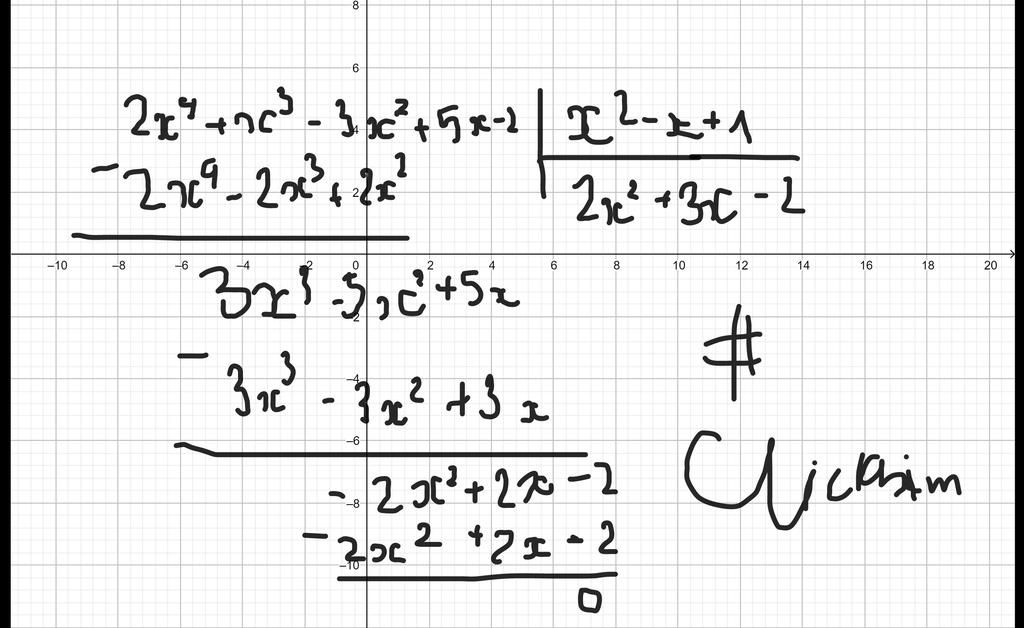 8
6
2x⁴ + x³ - 3x² + 5x - 2 | x² - x + 1
4
- 2x⁴ - 2x³ + 2x²
2
2x² + 3x - 2
-10 -8 -6 -4 -2 0 2 4 6 8 10 12 14 16 18 20
3x³ - 5x² + 5x
-2
#
-4
- 3x³ - 3x² + 3x
-6
- 2x² + 2x - 2
-8
- 2x² + 2x - 2
-10
0